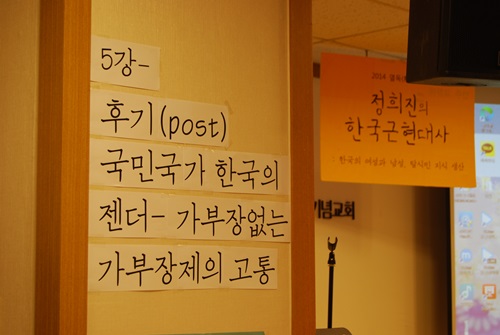 5강-
후기(post)
국민국가 한국의
젠더- 가부장없는
가부장제의 고통
2014
정희진의
한국근현대사
한국의 여성과 남성, 탈식민 지식 생산
기념교회